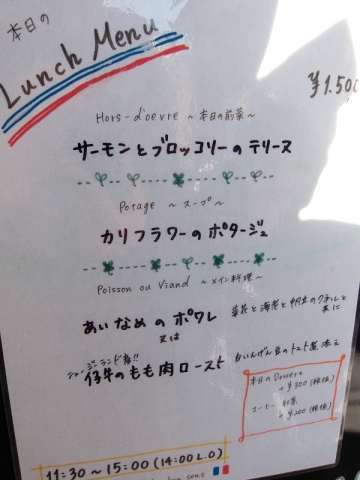 本日の
Lunch Menu
¥1.500
Hors-d'oevre ~本日の前菜~
サーモンとブロッコリーのテリーヌ
Potage ~スープ~
カリフラワーのポタージュ
Poisson ou Viand ~メイン料理~
あいなめのポワレ 菜花と海老と帆立のクネルと共に
又は
ニュージーランド産!!
仔牛のもも肉ロースト 白いんげん豆のトマト煮添え
本日のDessere
+¥300(税抜)
コーヒー・紅茶
+¥200(税抜)
11:30~15:00(14:00 L.O)
bon sens